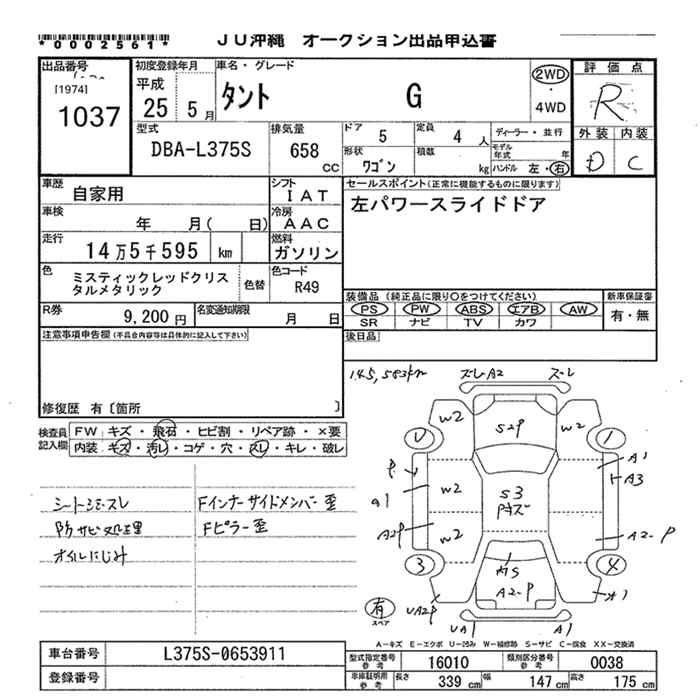 *0002561*
ＪＵ沖縄 オークション出品申込書
出品番号
[1974]
1037
初度登録年月
平成
25 5月
車名・グレード
タント G
2WD
・
4WD
評価点
R
外装 内装
D C
型式
DBA-L375S
排気量
658
cc
ドア 5
定員 4 人
ディーラー・並行
形状
ワゴン
積数
kg
モデル年式 年
ハンドル 左・右
車歴
自家用
シフト
ＩＡＴ
セールスポイント(正常に機能するものに限ります)
左パワースライドドア
車検
年 月( 日)
冷房
ＡＡＣ
走行
14万5千595 km
燃料
ガソリン
色
ミスティックレッドクリスタルメタリック
色替
色コード
R49
R券
9,200円
名変通知期限
月 日
装備品 (純正品に限り○をつけてください)
PS PW ABS エアB AW
SR ナビ TV カワ
新車保証書
有・無
注意事項申告欄(不具合内容等は具体的に記入して下さい)
後日品
修復歴 有〔箇所 〕
検査員記入欄
FW キズ・飛石・ヒビ割・リペア跡・×要
内装 キズ・汚レ・コゲ・穴・スレ・キレ・破レ
145,583km
ズレA2 ズレ
W2 W2
S2P
U 1
P A1
A3
a1 W2 S3
A2P W2 A2-P
3 4
A2-P
UA2P
UA1 A1
シートシミ・スレ
防サビ処理
オイルにじみ
Fインナーサイドメンバー歪
Fピラー歪
有
スペア
A－キズ E－エクボ U－凹み W－補修跡 S－サビ C－腐食 XX－交換済
車台番号 L375S-0653911
登録番号
型式指定番号 参考 16010
類別区分番号 参考 0038
車庫証明用 参考
長さ 339cm 幅 147cm 高さ 175cm